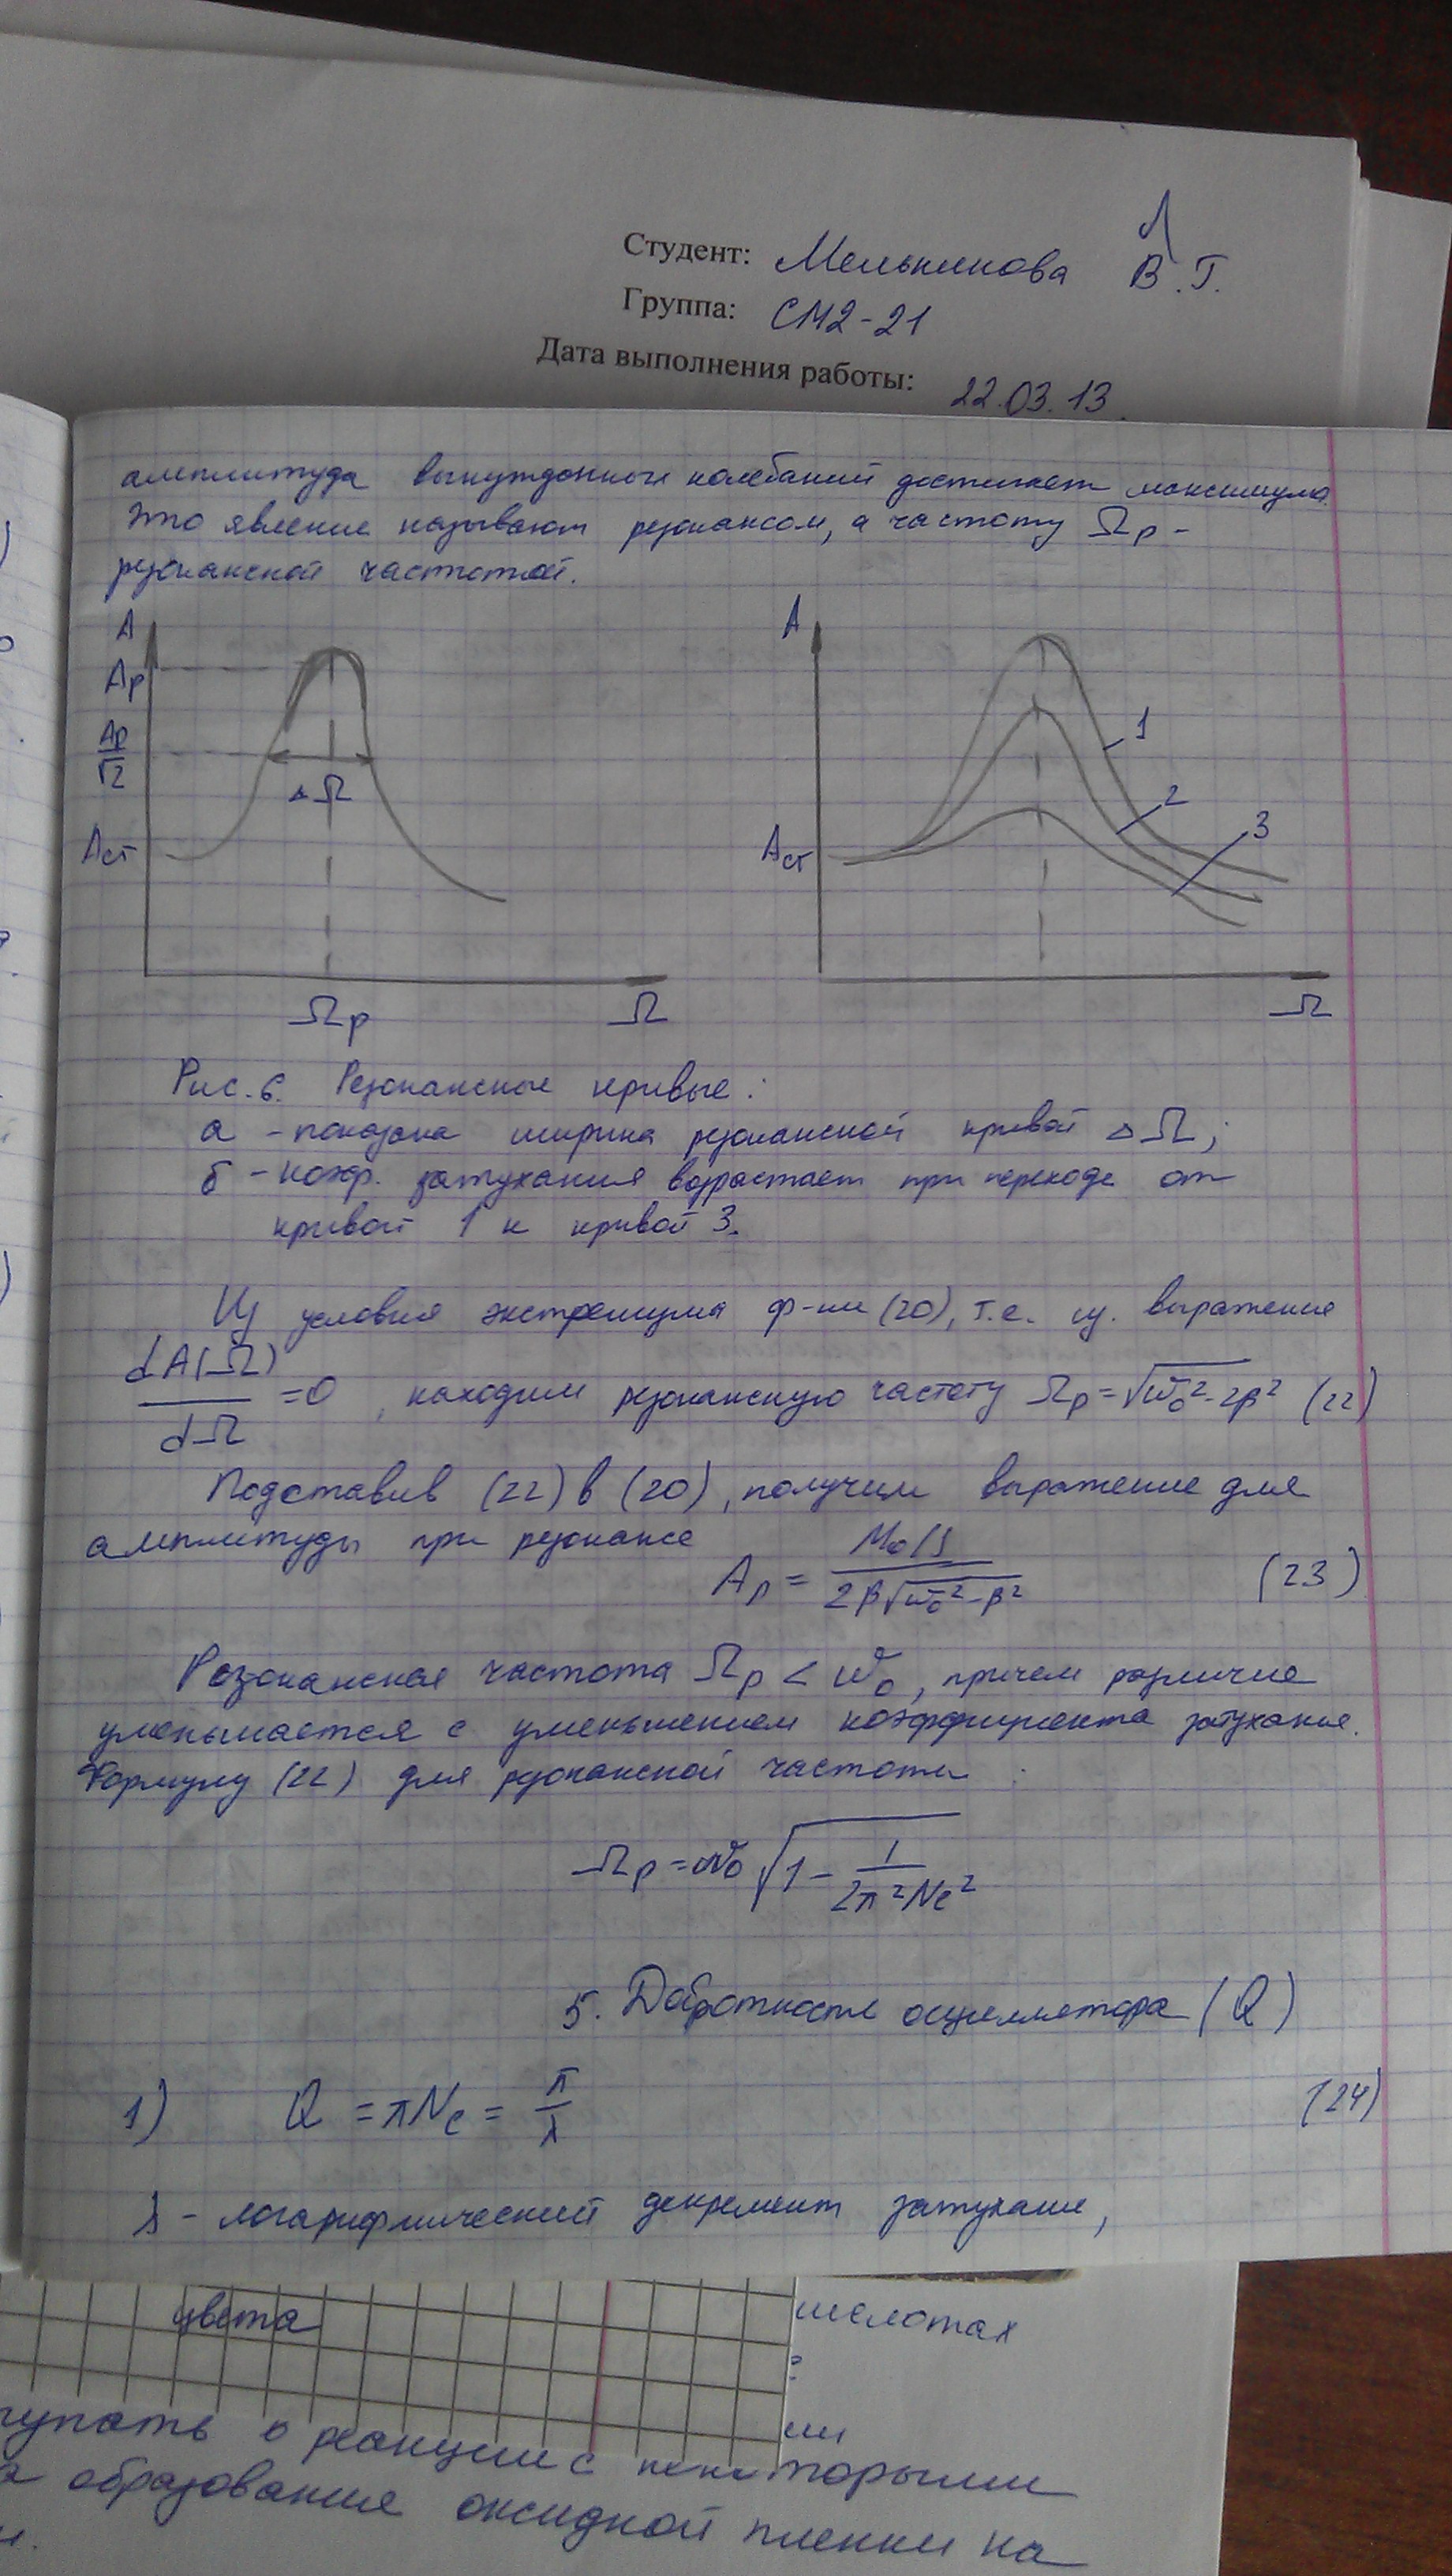 Студент: Мельникова В.Г.
Группа: СМ2-21
Дата выполнения работы: 22.03.13
амплитуда вынужденных колебаний достигает максимума.
Это явление называют резонансом, а частоту Ωр -
резонансной частотой.
A
Aр
Aр/√2
Aст
ΔΩ
Ωр
Ω
A
Aст
1
2
3
Ω
Рис. 6. Резонансные кривые:
а - показана ширина резонансной кривой ΔΩ;
б - коэф. затухания возрастает при переходе от
кривой 1 к кривой 3.
Из условия экстремума ф-ии (20), т.е. из выражения
dA(Ω)/dΩ = 0, находим резонансную частоту Ωр = √ω₀² - 2β² (22)
Подставив (22) в (20), получим выражение для
амплитуды при резонансе
Aр = M₀/J / 2β√ω₀² - β² (23)
Резонансная частота Ωр < ω₀, причем различие
уменьшается с уменьшением коэффициента затухания.
Формулу (22) для резонансной частоты
Ωр = ω₀ √1 - 1/2π²Ne²
5. Добротность осциллятора (Q)
1) Q = πNe = π/λ (24)
λ - логарифмический декремент затухания,
цвета
кислотах
ступать в реакции с некоторыми
образование оксидной пленки на